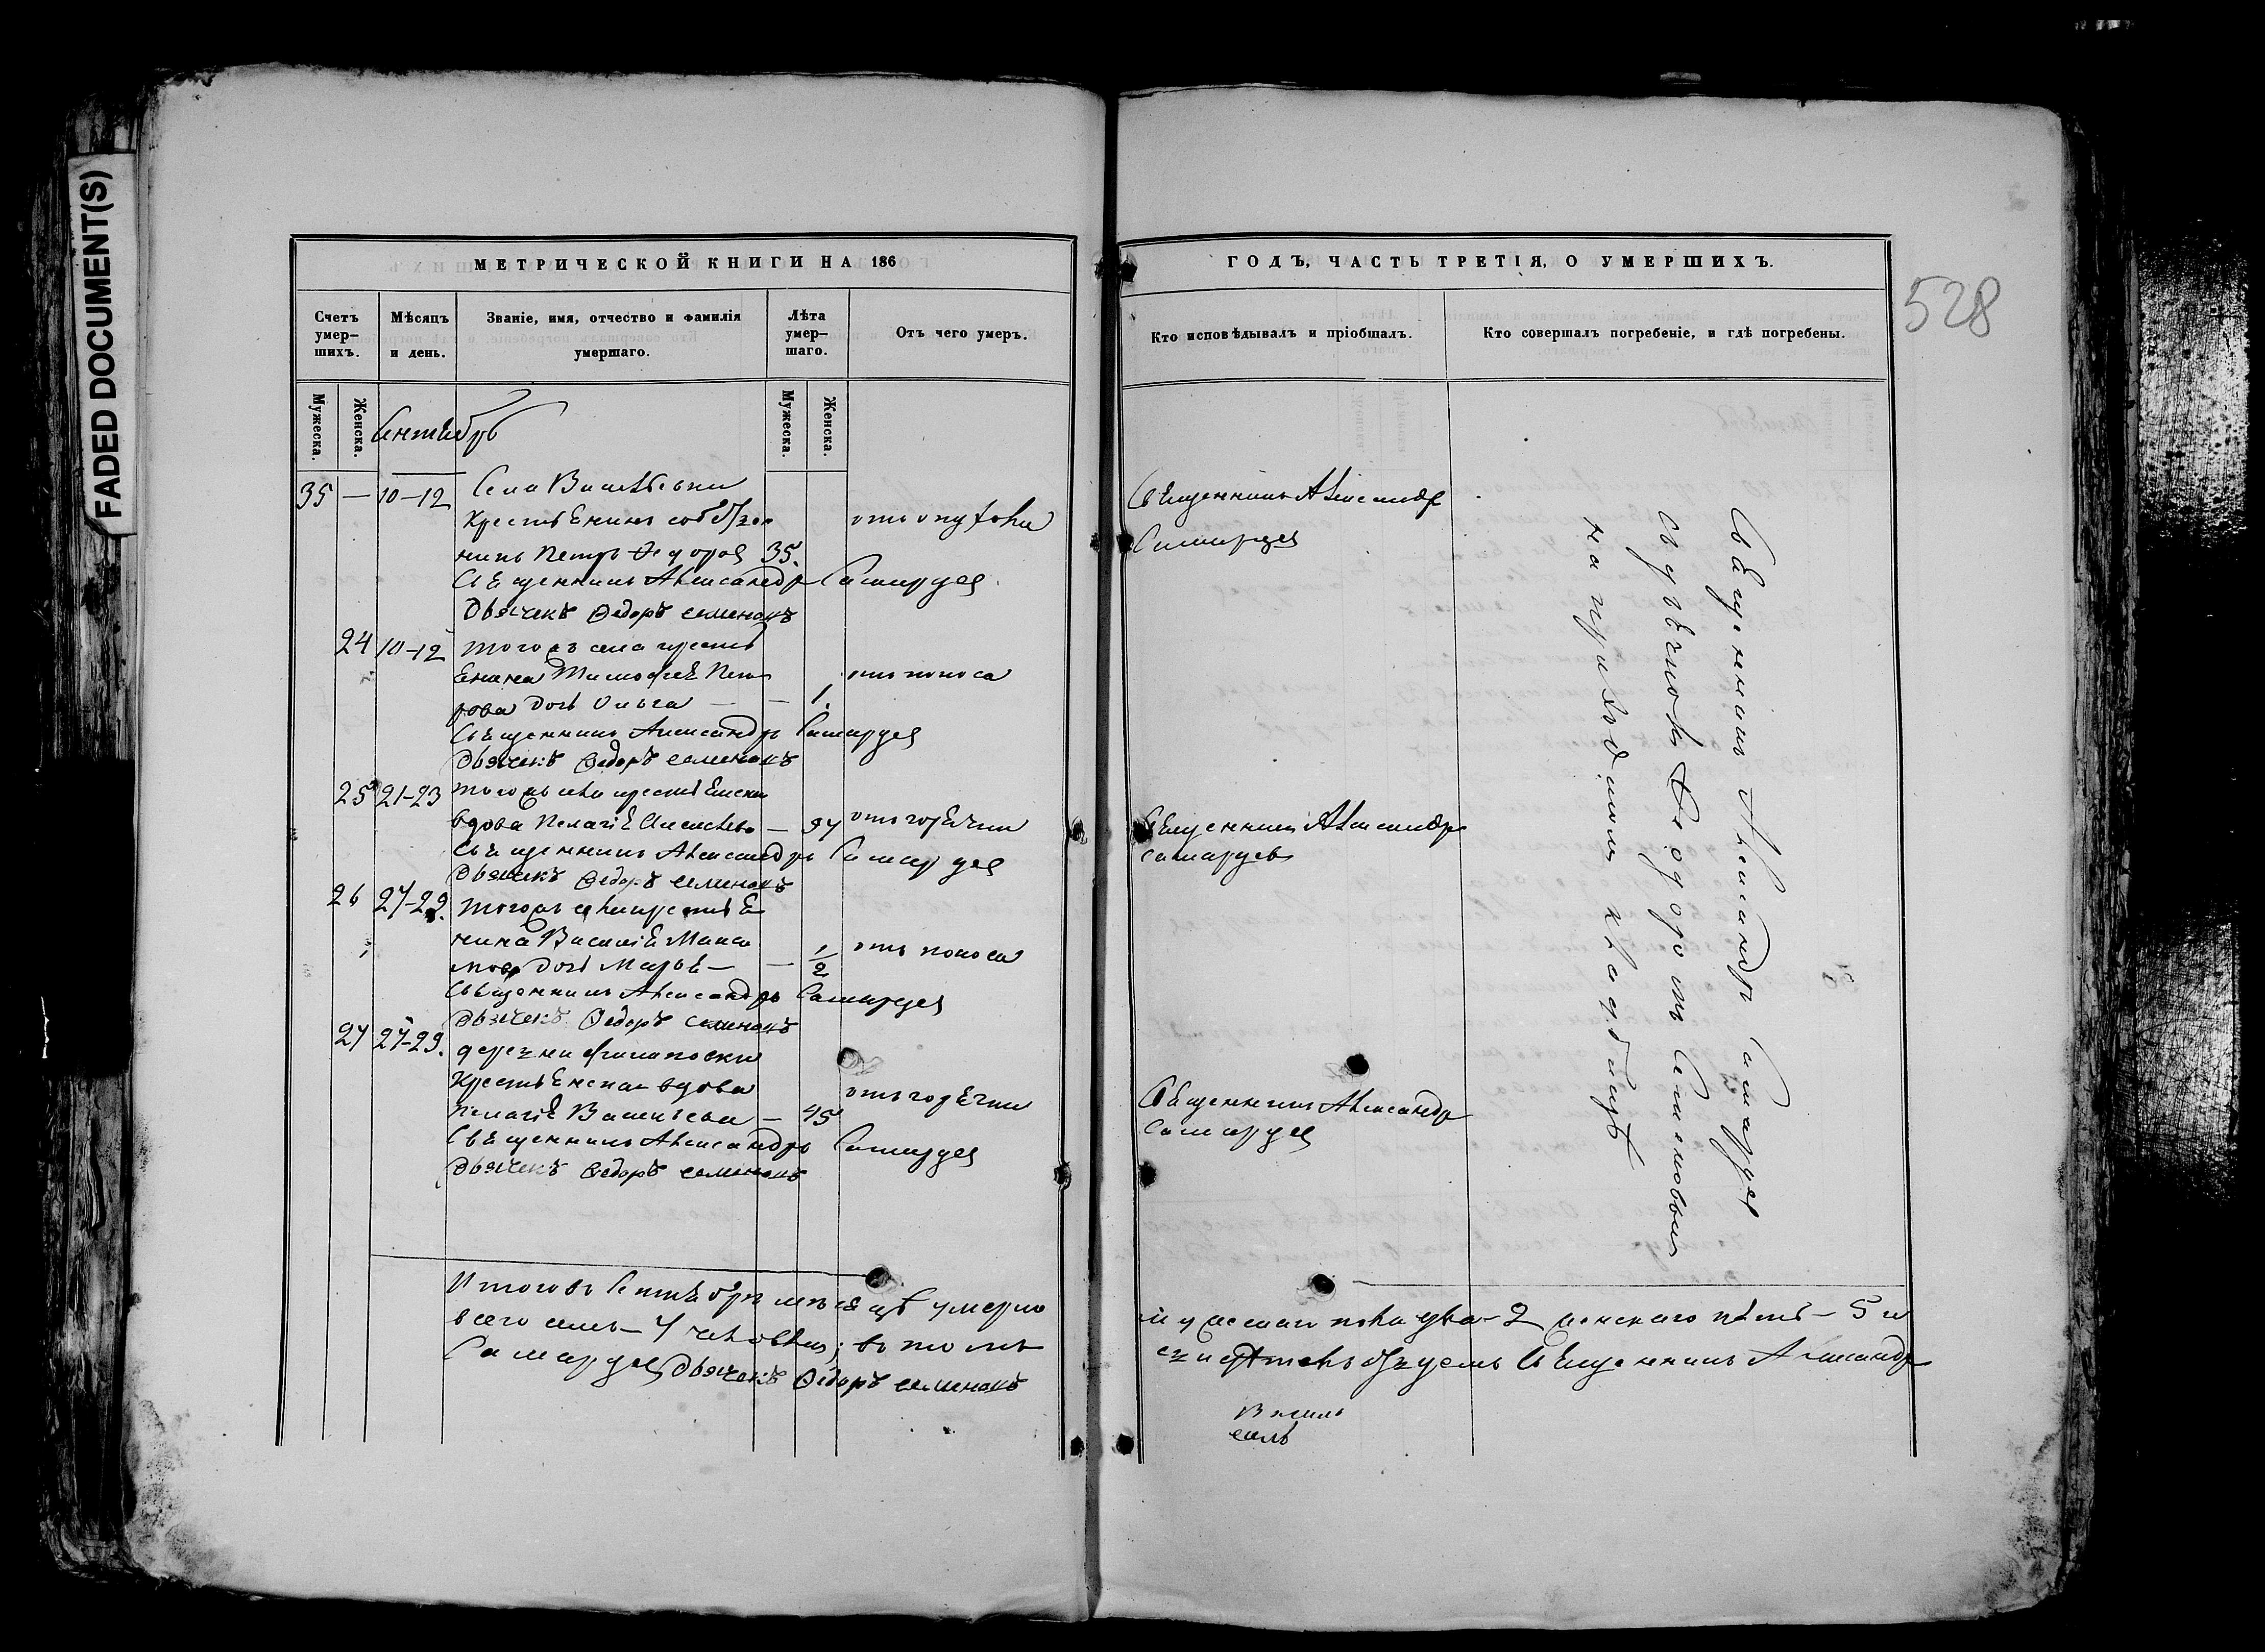 FADED DOCUMENT(S)
МЕТРИЧЕСКОЙ КНИГИ НА 186
Счетъ умер-шихъ.
Мѣсяцъ и день.
Званіе, имя, отчество и фамилія умершаго.
Лѣта умер-шаго.
Отъ чего умеръ.
Мужеска.
Женска.
Мужеска.
Женска.
Сентябрь
35 — 10-12 Села Василевки
крестьянинъ собствен
никъ Петръ Федоровъ 35.
отъ опухоли
Священникъ Александръ Самарцевъ
Дьячекъ Федоръ Семеновъ
24 10-12 того жъ села кресть
янина Тимофея Пет
рова дочь Ольга — — 1.
отъ поноса
Священникъ Александръ Самарцевъ
Дьячекъ Федоръ Семеновъ
25 21-23 того жъ села крестьянска
вдова Пелагія Алексѣева — 97
отъ горячки
Священникъ Александръ Самарцевъ
Дьячекъ Федоръ Семеновъ
26 27-29. того жъ села крестья
нина Василія Макси
мова дочь Марья — — 1/2
отъ поноса
Священникъ Александръ Самарцевъ
Дьячекъ Федоръ Семеновъ
27 27-29. деревни
крестьянская вдова
Пелагія Васильева — 45
отъ горячки
Священникъ Александръ Самарцевъ
Дьячекъ Федоръ Семеновъ
Итого въ Сентябрѣ мѣсяцѣ умерло
всего семь — 7 человѣкъ; въ томъ
Самарцевъ Дьячекъ Федоръ Семеновъ
ГОДЪ, ЧАСТЬ ТРЕТІЯ, О УМЕРШИХЪ.
528
Кто исповѣдывалъ и пріобщалъ.
Кто совершалъ погребеніе, и гдѣ погребены.
Священникъ Александръ
Самарцевъ
Священникъ Александръ
Самарцевъ
Священникъ Александръ
Самарцевъ
Священникъ Александръ Самарцевъ
съ дьячкомъ Федоромъ Семеновымъ
на приходскомъ кладбищѣ
мужескаго пола два — 2 женскаго пять — 5 и
Священникъ Александръ